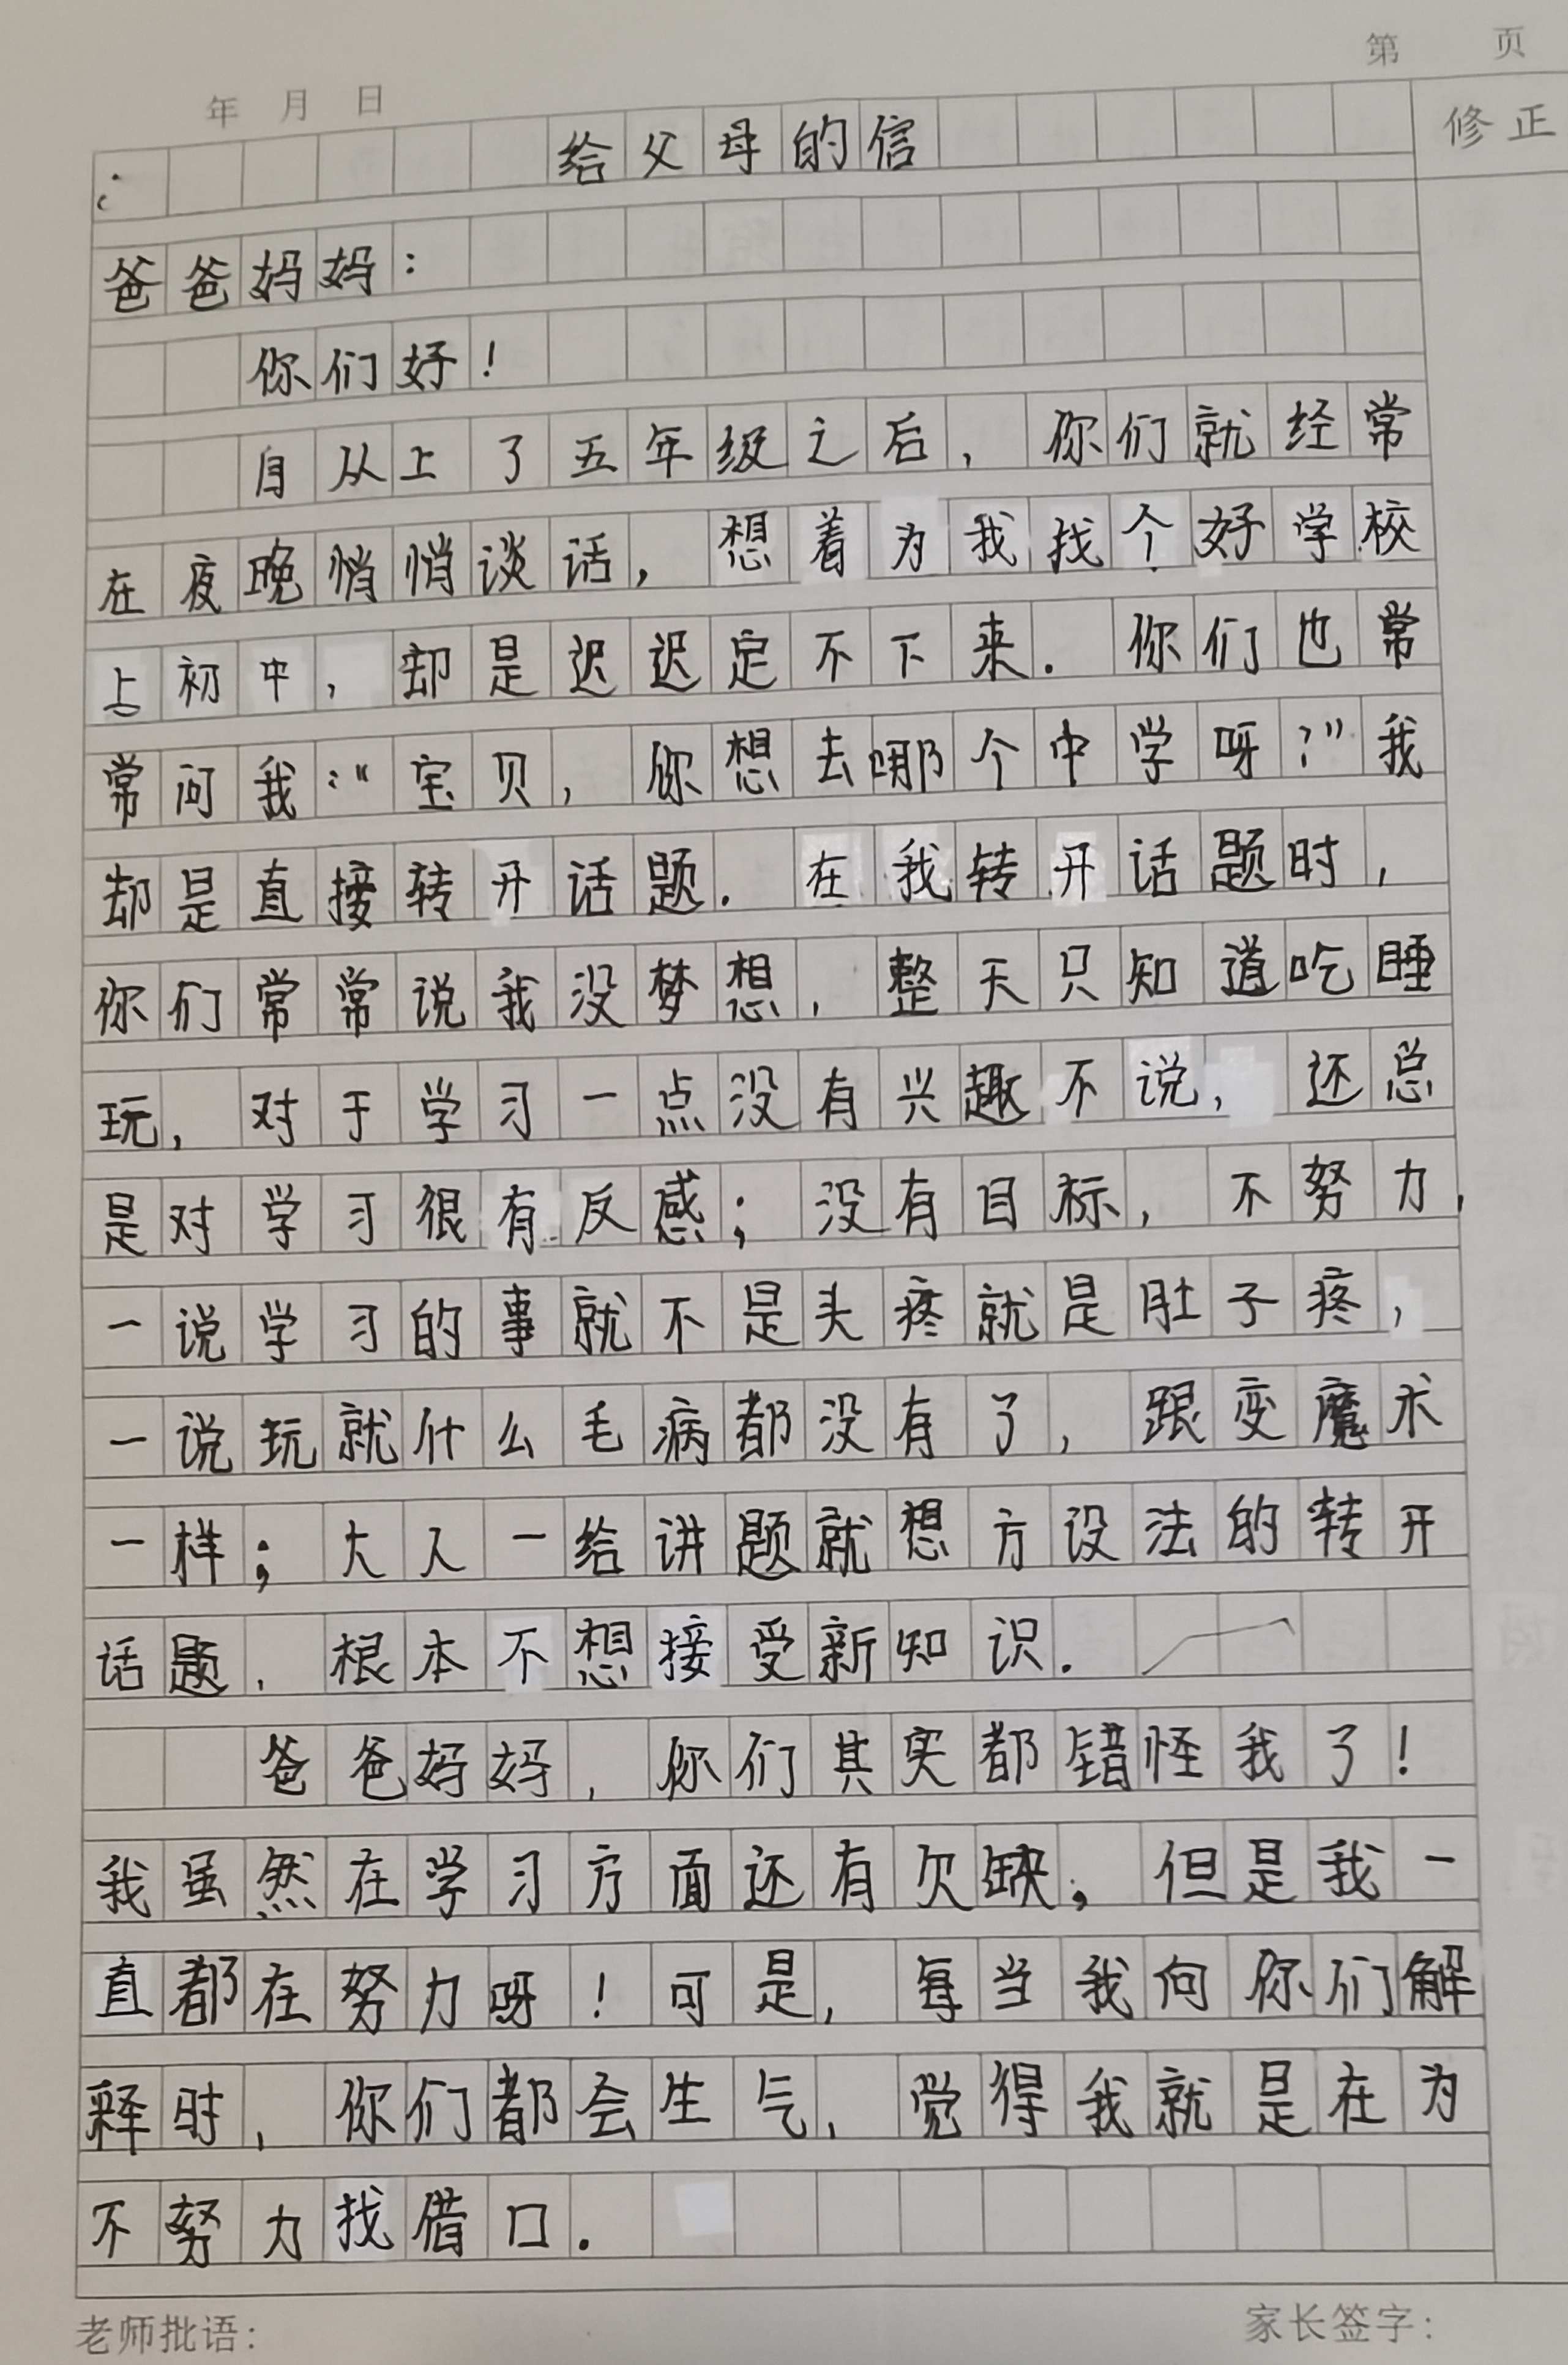 第 页
年 月 日
修正
给父母的信
爸爸妈妈：
你们好！
自从上了五年级之后，你们就经常
在夜晚悄悄谈话，想着为我找个好学校
上初中，却是迟迟定不下来．你们也常
常问我：“宝贝，你想去哪个中学呀？”我
却是直接转开话题．在我转开话题时，
你们常常说我没梦想，整天只知道吃睡
玩，对于学习一点没有兴趣不说，还总
是对学习很有反感；没有目标，不努力，
一说学习的事就不是头疼就是肚子疼，
一说玩就什么毛病都没有了，跟变魔术
一样；大人一给讲题就想方设法的转开
话题．根本不想接受新知识．
爸爸妈妈，你们其实都错怪我了！
我虽然在学习方面还有欠缺，但是我一
直都在努力呀！可是，每当我向你们解
释时，你们都会生气，觉得我就是在为
不努力找借口．
老师批语：
家长签字：